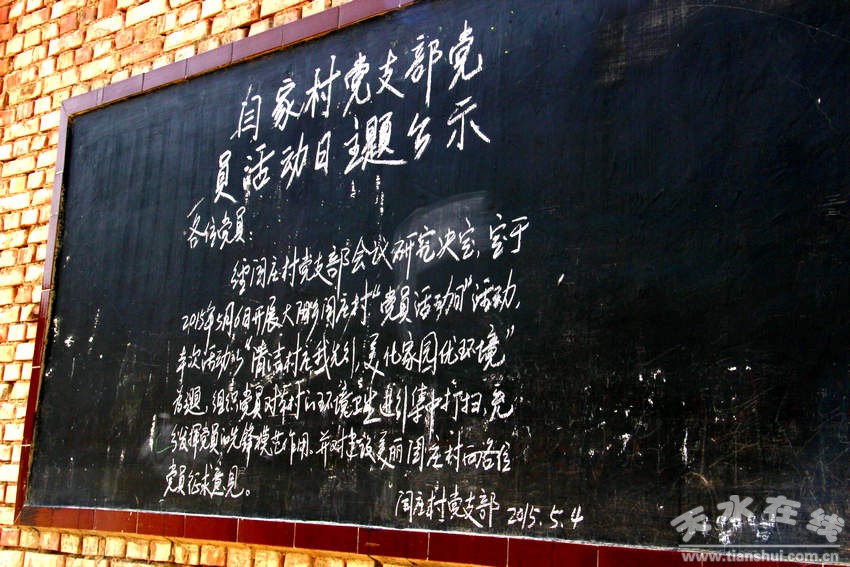 自家村党支部党
员活动日主题公示
各位党员:
经闫庄村党支部会议研究决定,定于
2015年5月6日开展大阳乡闫庄村“党员活动日”活动,
本次活动以“清洁村庄我先行,美化家园优环境”
为题,组织党员对本村的环境卫生进行集中打扫,充
分发挥党员的先锋模范作用。并对建设美丽闫庄村向各位
党员征求意见。
闫庄村党支部 2015.5.4
天水在线
www.tianshui.com.cn